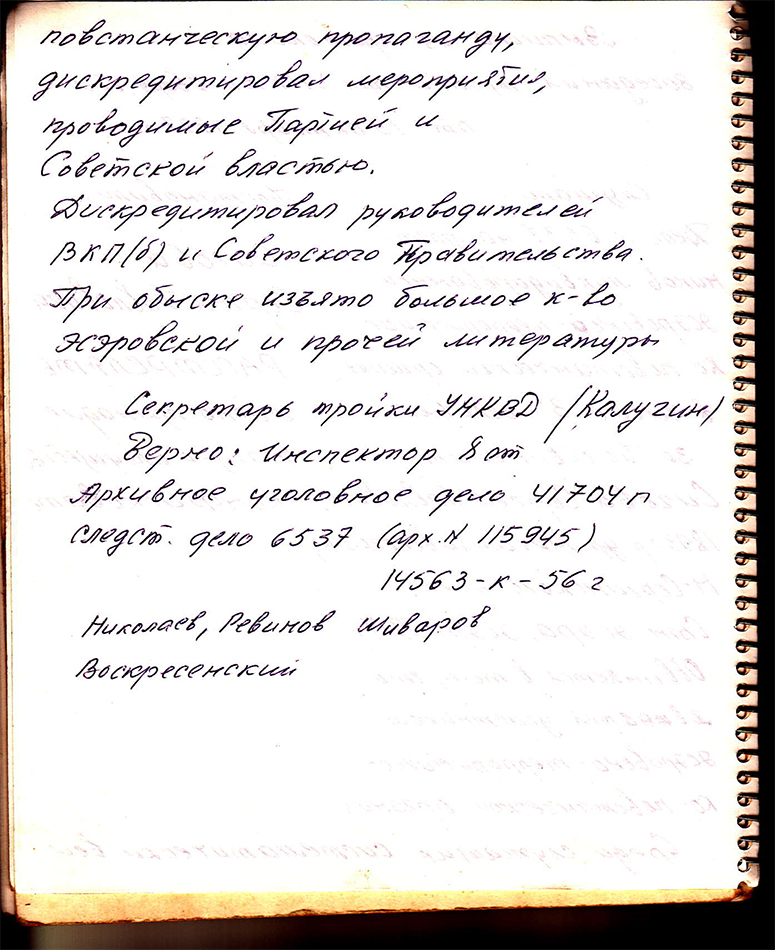 повстанческую пропаганду,
дискредитировал мероприятия,
проводимые Партией и
Советской властью.
Дискредитировал руководителей
ВКП(б) и Советского Правительства.
При обыске изъято большое к-во
эсэровской и прочей литературы
Секретарь тройки УНКВД (Калугин)
Верно: Инспектор
Архивное уголовное дело 41704 п
следст. дело 6537 (арх. N 115945)
14563-к-56 г
Николаев, Ревинов Шиваров
Воскресенский